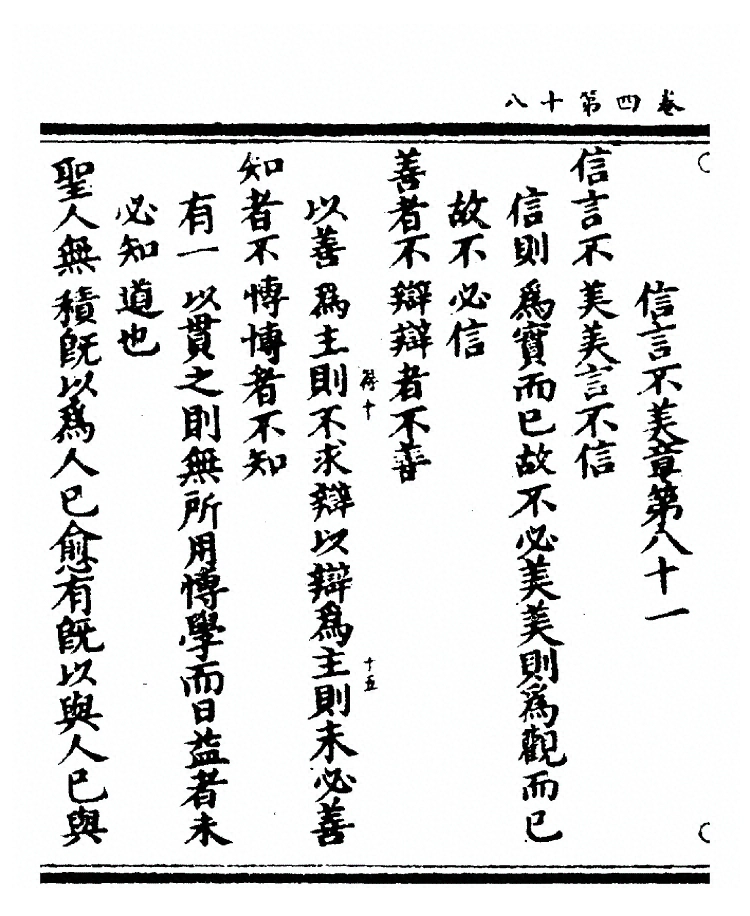 卷四第十八
信言不美章第八十一
信言不美美言不信
信則爲實而已故不必美美則爲觀而已
故不必信
善者不辯辯者不善
以善爲主則不求辯以辯爲主則未必善
知者不博博者不知
有一以貫之則無所用博學而日益者未
必知道也
聖人無積旣以爲人已愈有旣以與人已與
十五